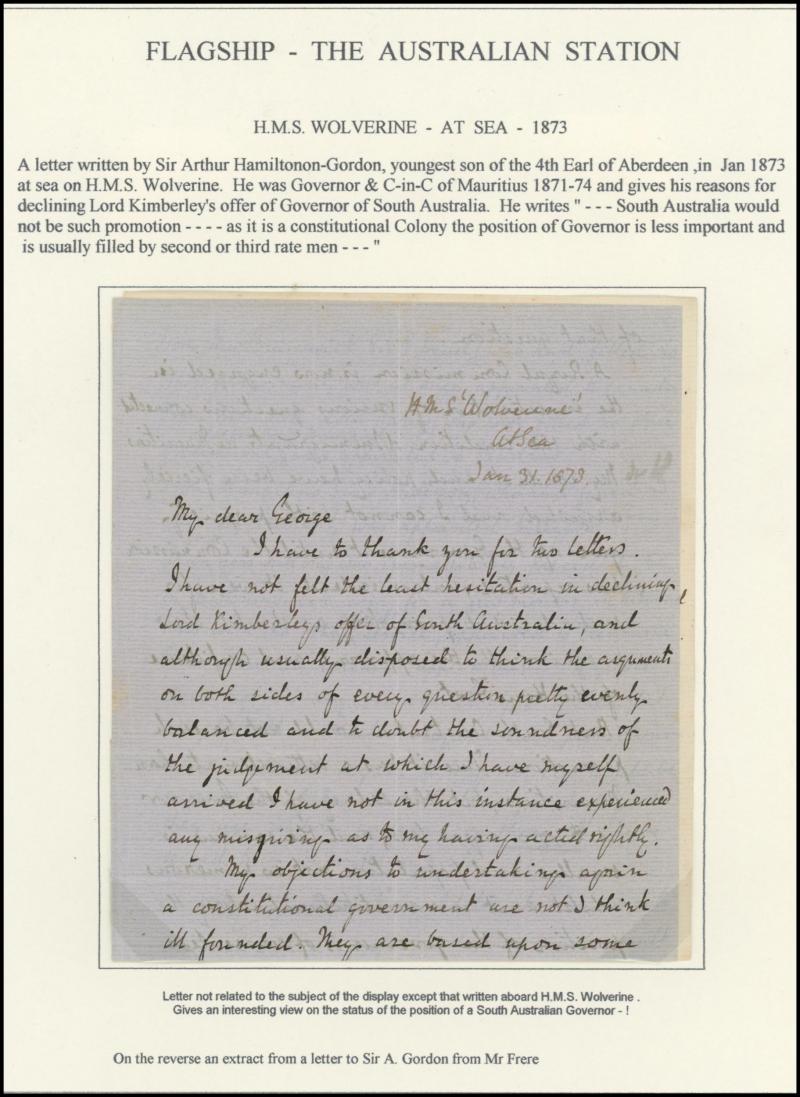 FLAGSHIP - THE AUSTRALIAN STATION
H.M.S. WOLVERINE - AT SEA - 1873
A letter written by Sir Arthur Hamiltonon-Gordon, youngest son of the 4th Earl of Aberdeen ,in Jan 1873
at sea on H.M.S. Wolverine. He was Governor & C-in-C of Mauritius 1871-74 and gives his reasons for
declining Lord Kimberley's offer of Governor of South Australia. He writes " - - - South Australia would
not be such promotion - - - - as it is a constitutional Colony the position of Governor is less important and
is usually filled by second or third rate men - - - "
H.M.S 'Wolverine'
At Sea
Jan 31. 1873.
My dear George
I have to thank you for two letters.
I have not felt the least hesitation in declining
Lord Kimberleys offer of South Australia, and
although usually disposed to think the arguments
on both sides of every question pretty evenly
balanced and to doubt the soundness of
the judgement at which I have myself
arrived I have not in this instance experienced
any misgiving as to my having acted rightly.
My objections to undertaking again
a constitutional government are not I think
ill founded. They are based upon some
Letter not related to the subject of the display except that written aboard H.M.S. Wolverine .
Gives an interesting view on the status of the position of a South Australian Governor - !
On the reverse an extract from a letter to Sir A. Gordon from Mr Frere